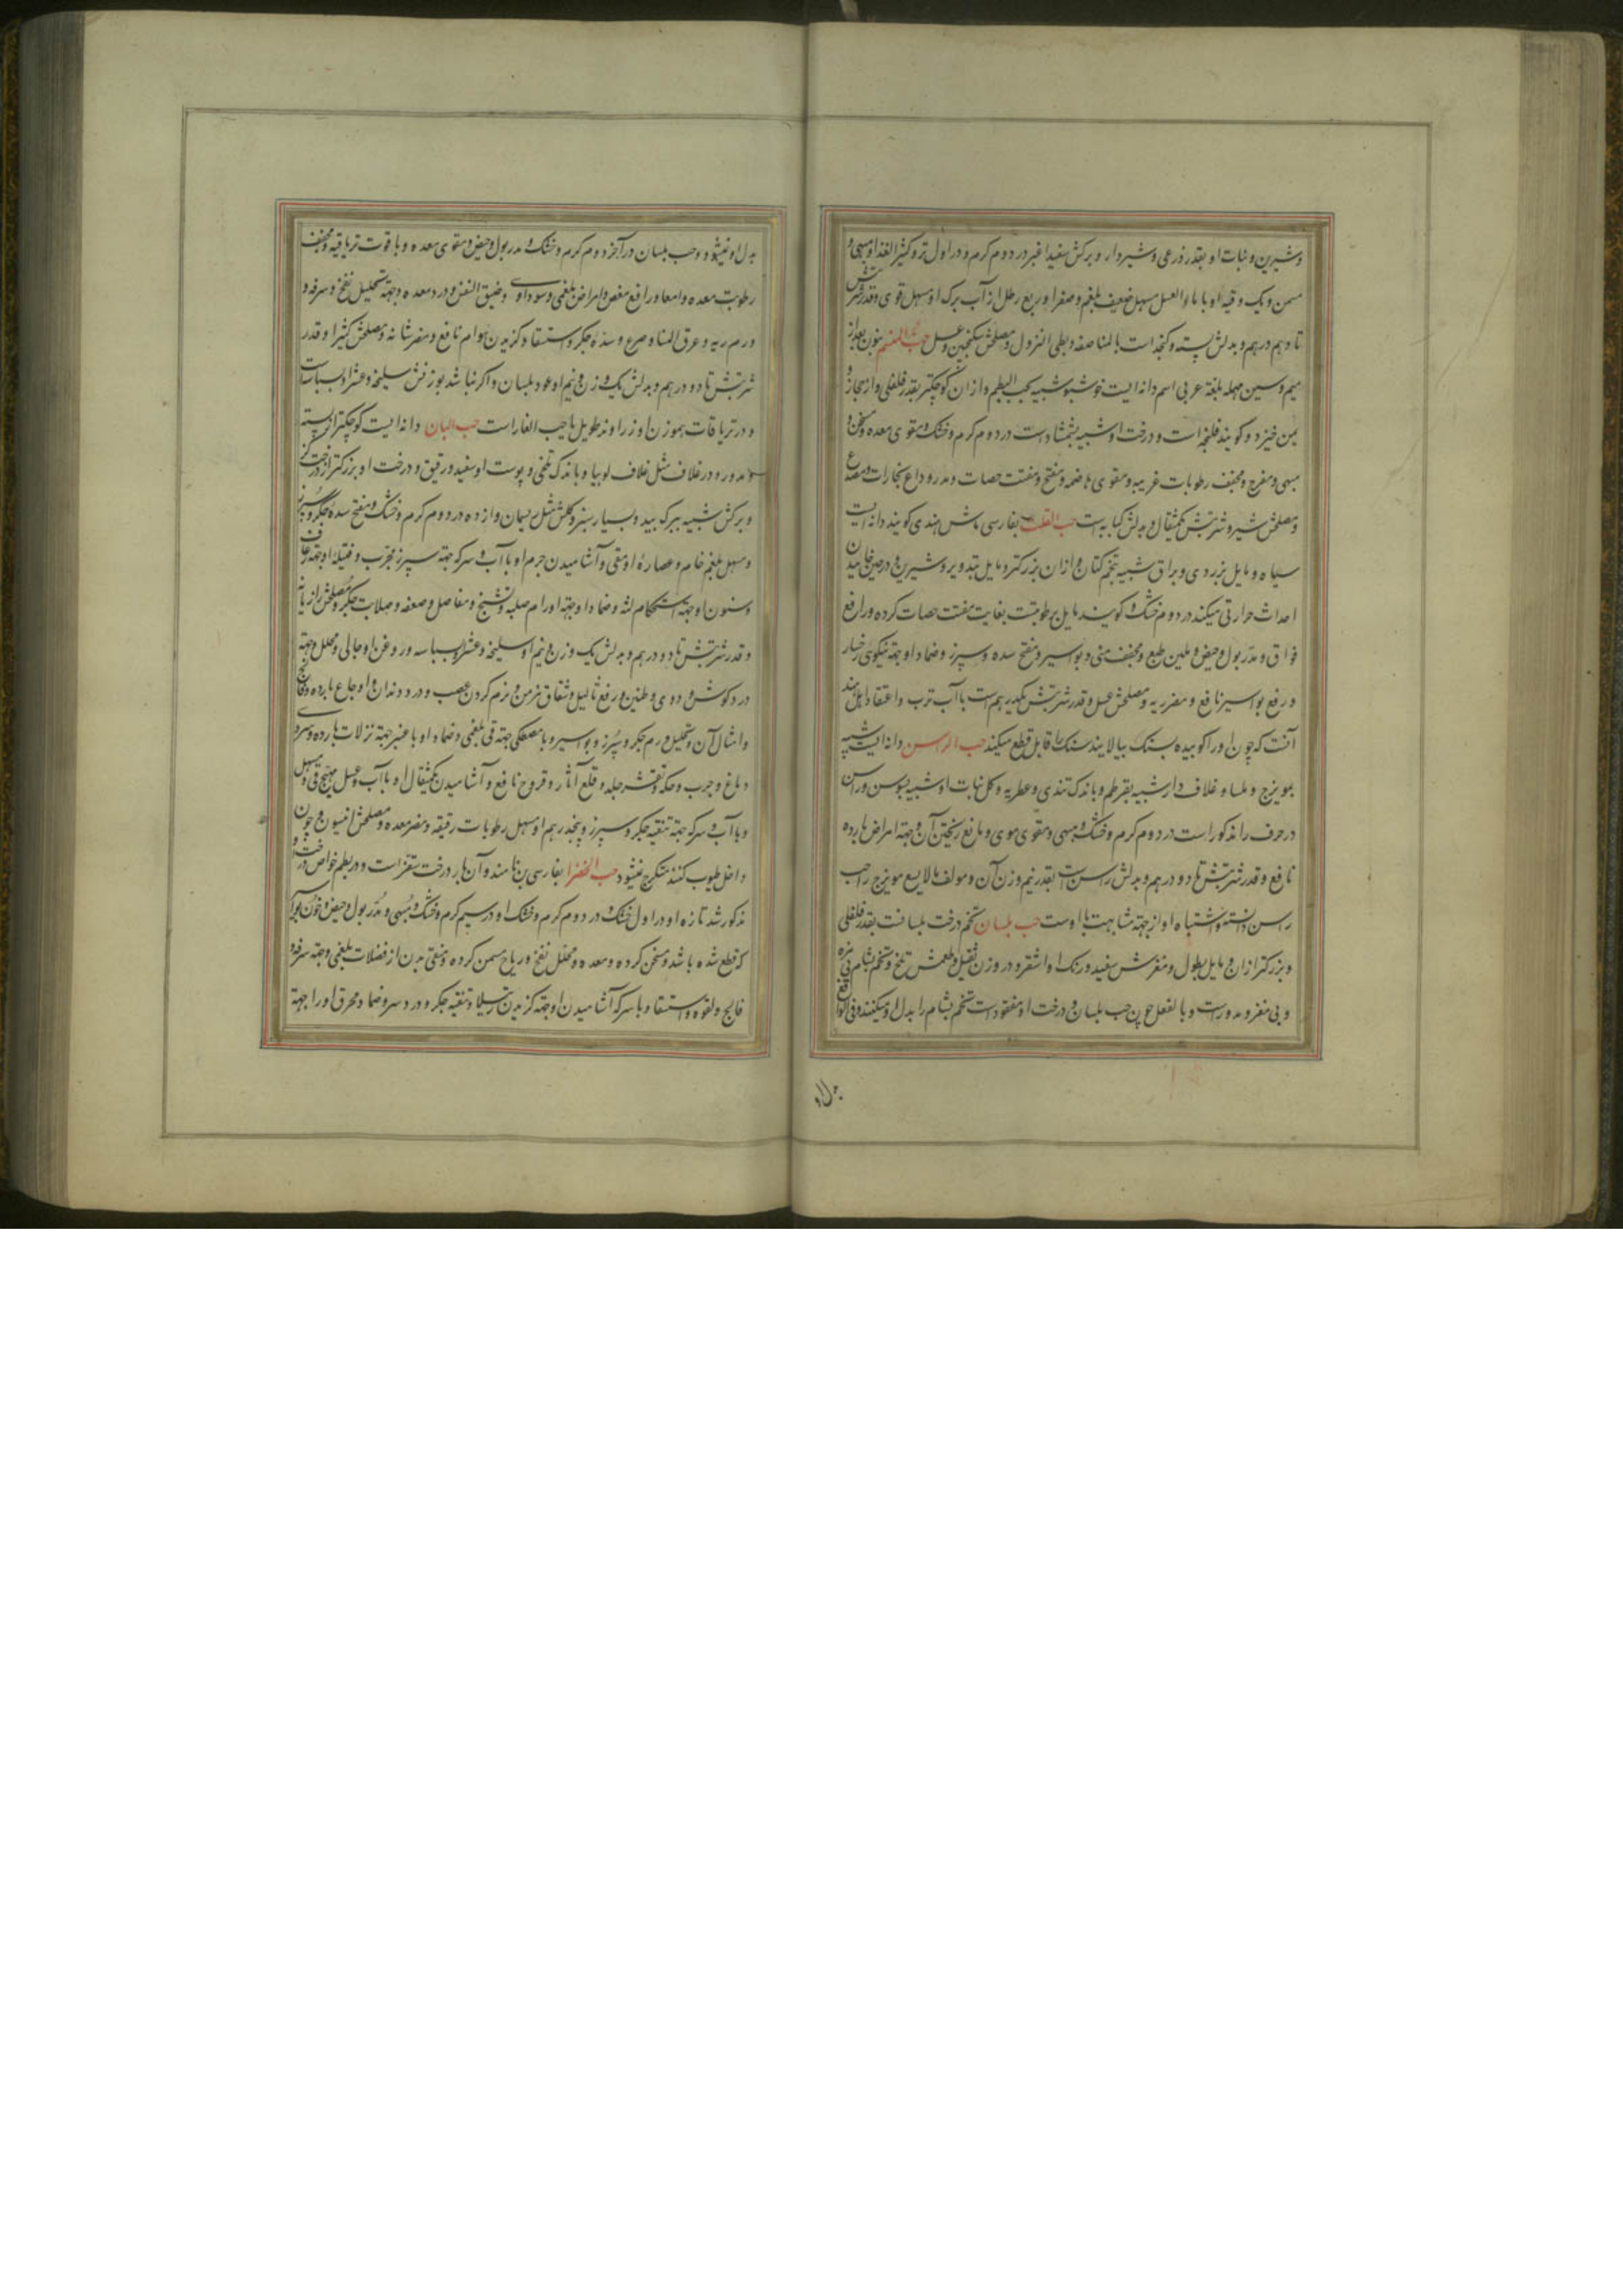 و شیرین و نبات او بقدر ذرعی و شیردار و برکش سفید اغبر در دوم کرم و در اول تر و کثیر الغذا و مبهی و
مسمن و یک وقیه او با ماء العسل مسهل ضعیف بلغم و صفرا و ربع رطل از آب برک او مسهل قوی و قدر شربتش
تا دو هم درهم و بدلش پسته و کنجد است بالمناصفه و بطی النزول و مصلحش سکنجبین و عسل حب المنسم بنون بعد از
میم و سین مهمله بلغة عربی اسم دانه ایست خوشبو شبیه بحب البطم و از ان کوچکتر بقدر فلفلی و از حجاز و
یمن خیزد و کویند فلنجه است و درخت او شبیه بشمشاد است در دوم کرم و خشک و مقوی معده و مسخن و
مبهی و مفرح و مجفف رطوبات غریبه و مقوی هاضمه و مفتح و مفتت حصات و مدر و داع بخارات و مصدع
و مصلحش شیر و شربتش یکمثقال و بدلش کبابه است حب القلت بفارسی ماش هندی کویند دانه ایست
سیاه و مایل بزردی و براق شبیه بتخم کتان و از ان بزرکتر و مایل بتدویر و شیرین و در حین خاییدن
احداث حرارتی میکند در دوم خشک و کویند مایل برطوبت بغایت مفتت حصات کرده و رافع
فواق و مدر بول و حیض و ملین طبع و مجفف منی و بواسیر و مفتح سده و سپرز و ضماد او جهة نیکوی رخسار
و رفع بواسیر نافع و مضر ریه و مصلحش عسل و قدر شربتش یکدرهم است با آب ترب و اعتقاد اهل هند
آنست که چون او را کوبیده بسنک بیالایند سنک را قابل قطع میکند حب الراسن دانه ایست شبیه
بمویزج و ملسا و غلاف دار شبیه بقرطم و باندک تندی و عطریه و کل نبات او شبیه بسوسن و راسن
در حرف را مذکور است در دوم کرم و خشک و مبهی و مقوی موی و مانع ریختن آن و جهة امراض بارده
نافع و قدر شربتش تا دو درهم و بدلش راسن است بقدر نیم وزن آن و مولف مالایسع مویزج را حب
راسن دانسته و اشتباه او از جهة مشابهت با اوست حب بلسان تخم درخت بلسانست بقدر فلفلی
و بزرکتر از ان و مایل بطول و مغزش سفید و رنک او اشقر و در وزن ثقیل و طعمش تلخ و تخم بشام بی مزه
و بی مغز و مدور است و بالفعل چون حب بلسان و درخت او مفقود است تخم بشام را بدل او میکنند و فی الواقع
بدل او
بدل او نمیشود و حب بلسان در آخر دوم کرم و خشک و مدر بول و حیض و مقوی معده و با قوت تریاقیه و مجفف
رطوبت معده و امعا و رافع مغص و امراض بلغمی و سوداوی و ضیق النفس و درد معده و جهة تحلیل نفخ و سرفه و
ورم ریه و عرق النسا و صرع و سده جکر و استسقا و کزیدن هوام نافع و مضر مثانه و مصلحش کثیرا و قدر
شربتش تا دو درهم و بدلش یک وزن و نیم او عود بلسان و اکر نباشد بوزنش سلیخه و عشر او بسباسه
و در تریاقات بموزن او زراوند طویل یا حب الغار است حب البان دانه ایست کوچکتر از پسته
و مدور و در غلاف مثل غلاف لوبیا و باندک تلخی و پوست او سفید و رقیق و درخت او بزرکتر از درخت کز
و برکش شبیه ببرک بید و بسیار سبز و کلش مثل ریسمان وا زده در دوم کرم و خشک و مفتح سده جکر و سپرز
و مسهل بلغم خام و عصارهٔ او مقی و آشامیدن جرم او با آب و سرکه جهة سپرز مجرب و فتیلهٔ او جهة رعاف
و سنون او جهة استحکام لثه و ضماد او جهة اورام صلبه و تشنج و مفاصل و صعفه و صلابت جکر و مصلحش رازیانه
و قدر شربتش تا دو درهم و بدلش یک وزن و نیم او سلیخه و عشر او بسباسه و روغن او جالی و محلل و جهة
درد کوش و دوی و طنین و رفع ثالیل و شقاق مزمن و نرم کردن عصب و درد دندان و اوجاع بارده و فالج
و امثال آن و تحلیل ورم جکر و سپرز و بواسیر و با مصطکی جهة قی بلغمی و ضماد او با عنبر جهة نزلات بارده و سرد
دماغ و جرب و حکه و تقشر جلد و قلع آثار و قروح نافع و آشامیدن یکمثقال او با آب و عسل مهیج قی و مسهل
و با آب و سرکه جهة تنقیه جکر و سپرز و پنجدرهم او مسهل رطوبات رقیقه و مضر معده و مصلحش انیسون و چون
داخل طیوب کنند متکرج نمیشود حب الخضرا بفارسی بن نامند و آن بار درخت سقز است و در بطم خواص درخت او
مذکور شد تازه او در اول خشک و در دوم کرم و خشک او در سیم کرم و خشک و مبهی و مدر بول و حیض و خون بواسیر
که قطع شده باشد و مسخن کرده و معده و محلل نفخ و ریاح مسمن کرده و منقی بدن از فضلات بلغمی و جهة سرفه و
فالج و لقوه و استسقا و با سرکه آشامیدن او جهة کزیدن رتیلا و تنقیه جکر و درد سر و ضماد محرق او را جهة